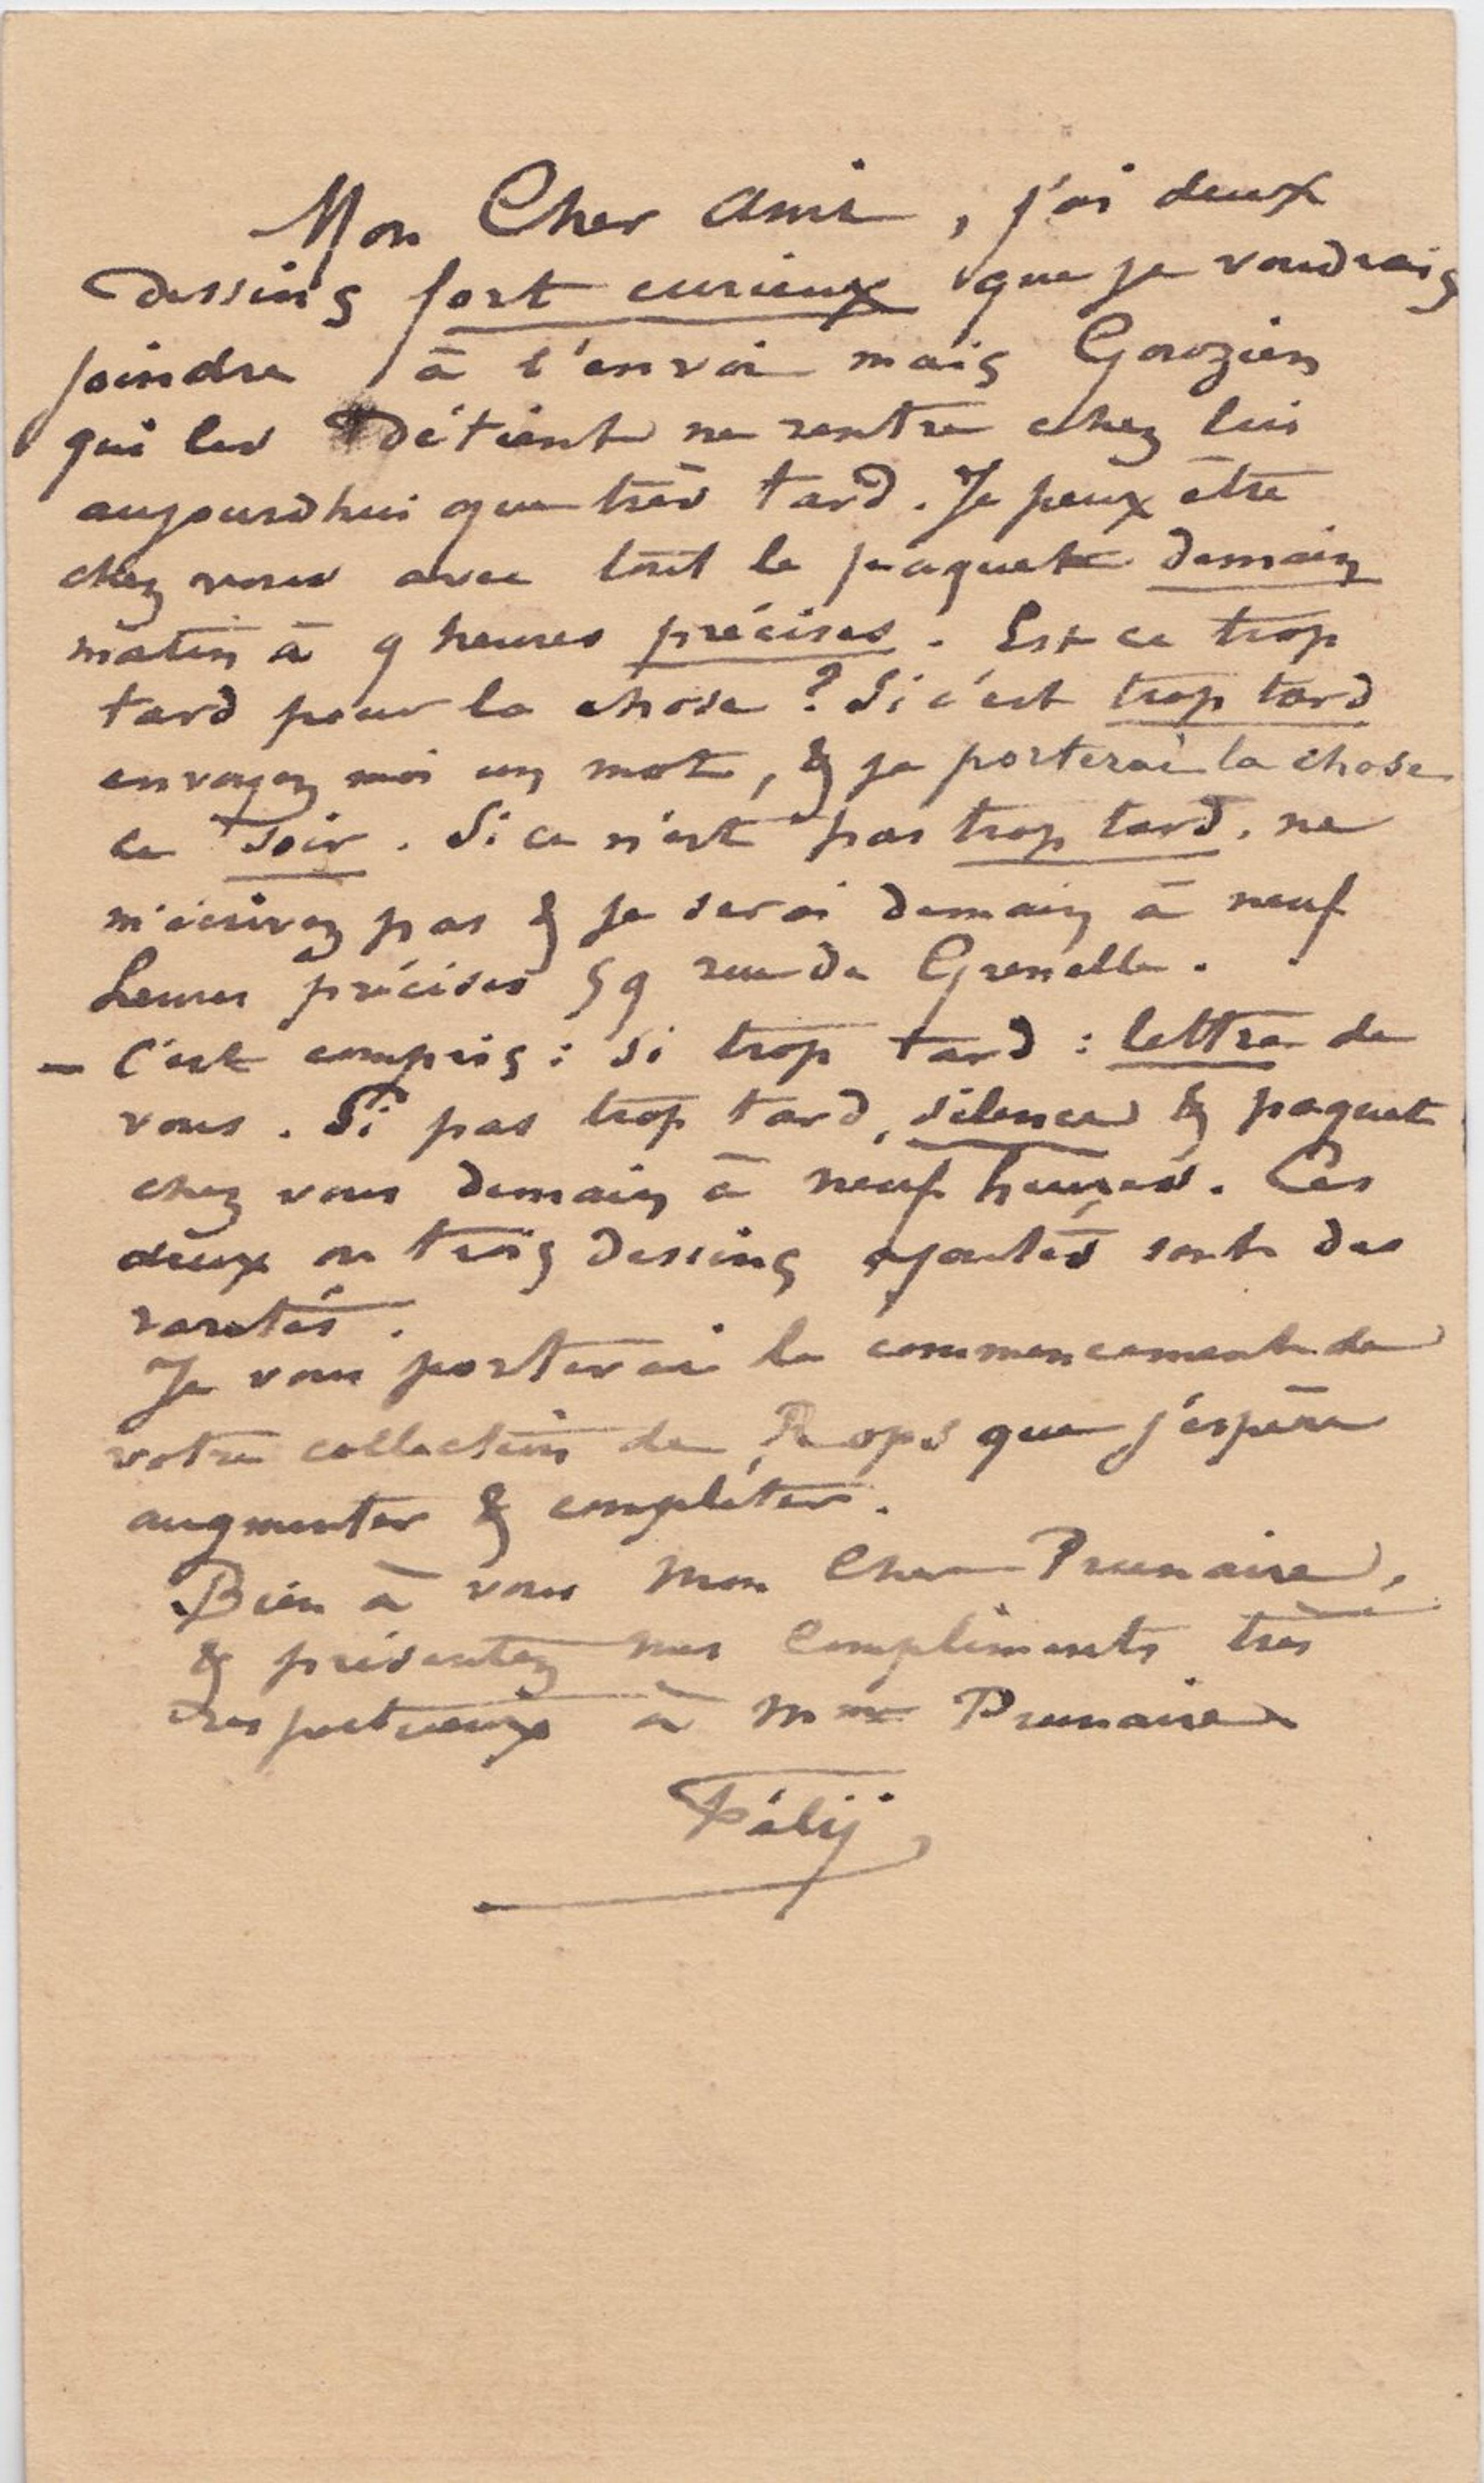 Mon Cher Ami, j'ai deux
dessins fort curieux que je voudrais
joindre à l'envoi mais Gouzien
qui les détient ne rentre chez lui
aujourdhui que très tard. Je peux être
chez vous avec tout le paquet demain
matin à 9 heures précises. Est ce trop
tard pour la chose ? Si c'est trop tard
envoyez moi un mot, & je porterai la chose
ce soir. Si ce n'est pas trop tard, ne
m'écrivez pas & je serai demain à neuf
heures précises 59 rue de Grenelle.
– C'est compris : si trop tard : lettre de
vous. Si pas trop tard, silence & paquet
chez vous demain à neuf heures. Ces
deux ou trois dessins ajoutés sont des
raretés.
Je vous porterai le commencement de
votre collection de Rops que j'espère
augmenter & compléter.
Bien à vous mon Cher Prunaire,
& présentez mes compliments très
respectueux à Mme Prunaire
Fély